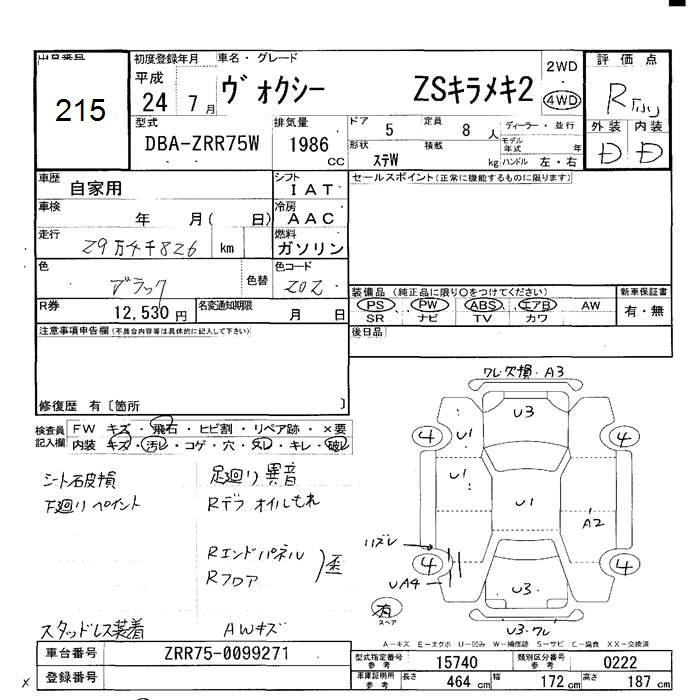 出品番号
215
初度登録年月
平成
24 7月
車名・グレード
ヴォクシー ZSキラメキ2
2WD
4WD
評価点
R
外装 内装
D D
型式
DBA-ZRR75W
排気量
1986 cc
ドア 5
定員 8人
形状 ステW
積載 kg
ディーラー・並行
モデル年式 年
ハンドル 左・右
車歴 自家用
シフト IAT
セールスポイント(正常に機能するものに限ります)
車検 年 月( 日)
冷房 AAC
走行 29万4千826 km
燃料 ガソリン
色 ブラック 色替
色コード 202
装備品 (純正品に限り○をつけてください)
新車保証書
PS PW ABS エアB AW
有・無
SR ナビ TV カワ
R券 12,530円
名変通知期限 月 日
後日品
注意事項申告欄(不具合内容等は具体的に記入して下さい)
修復歴 有〔箇所 〕
検査員記入欄
FW キズ・飛石・ヒビ割・リペア跡・×要
内装 キズ・汚レ・コゲ・穴・スレ・キレ・破レ
シート石皮損
下廻りペイント
足廻り異音
Rデフ オイルもれ
Rエンドパネル
Rフロア
歪
スタッドレス装着 AWキズ
ワレ・欠損・A3
U3
4 U1 4
U1
U1
A2
ハズレ
4 UA4 4
U3
有
スペア
U3・ワレ
A－キズ E－エクボ U－凹み W－補修跡 S－サビ C－腐食 XX－交換済
車台番号 ZRR75-0099271
登録番号
型式指定番号 参考 15740
類別区分番号 参考 0222
車庫証明用 参考 長さ 464 cm 幅 172 cm 高さ 187 cm